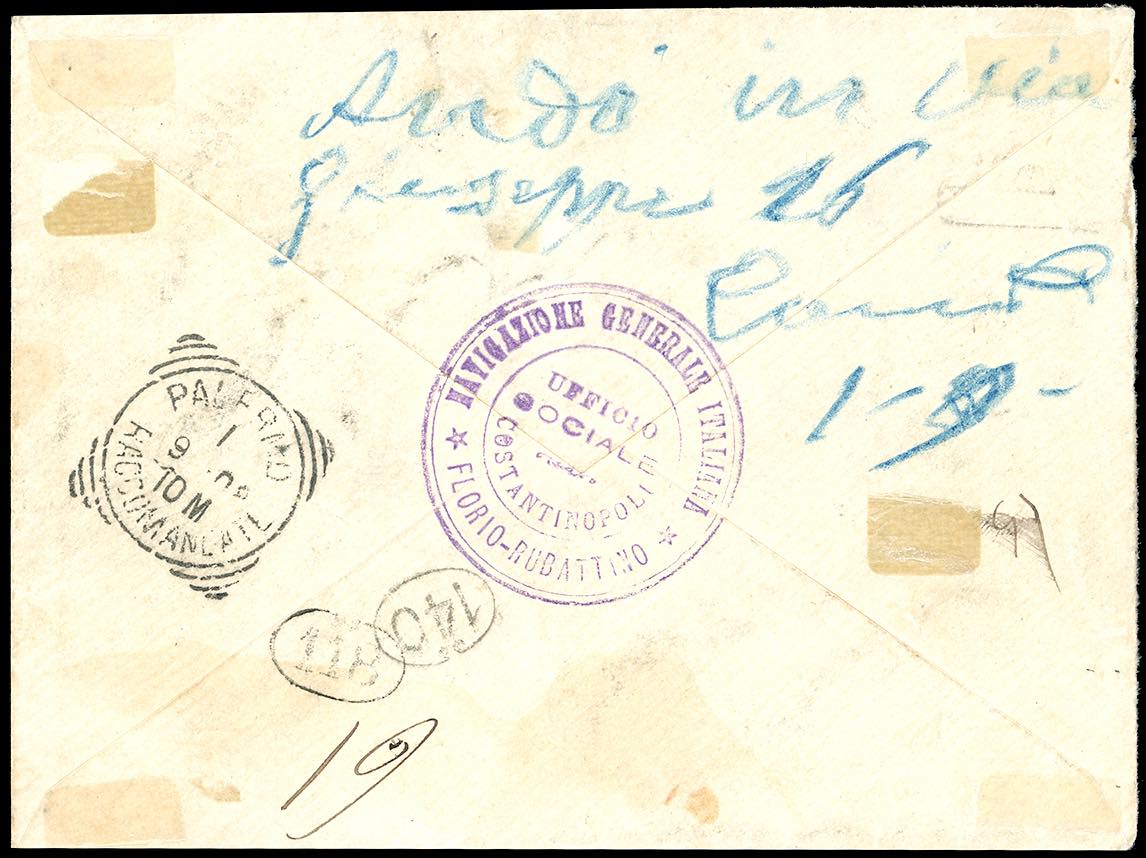 Andò in via
Giuseppe 26
1-
NAVIGAZIONE GENERALE ITALIANA
★ FLORIO-RUBATTINO ★
UFFICIO
SOCIALE
COSTANTINOPOLI
PALERMO
9 1
10 M
RACCOMANDATE
140
19